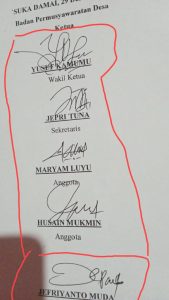 SUKA DAMAI, 29
Badan Permusyawaratan Desa
Ketua
YUSUF KAMUMU
Wakil Ketua
JEPRI TUNA
Sekretaris
MARYAM LUYU
Anggota
HUSAIN MUKMIN
Anggota
JEFRIYANTO MUDA